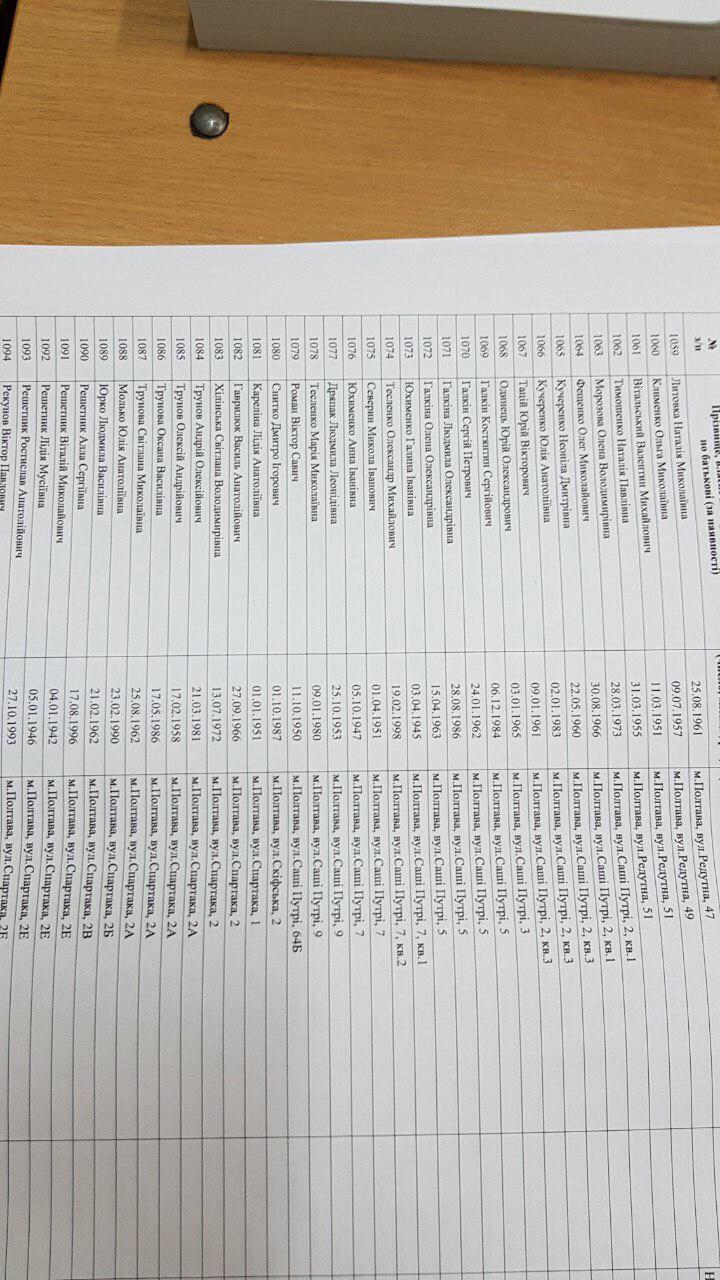 № з/п Прізвище, по батькові (за наявності)
1059 Литовка Наталія Миколаївна 25.08.1961 м.Полтава, вул.Редутна, 47
1060 Клименко Ольга Миколаївна 09.07.1957 м.Полтава, вул.Редутна, 49
1061 Вітальський Валентин Михайлович 11.03.1951 м.Полтава, вул.Редутна, 51
1062 Тимошенко Наталія Павлівна 31.03.1955 м.Полтава, вул.Редутна, 51
1063 Морозова Олена Володимирівна 28.03.1973 м.Полтава, вул.Саші Путрі, 2, кв.1
1064 Фещенко Олег Миколайович 30.08.1966 м.Полтава, вул.Саші Путрі, 2, кв.1
1065 Кучеренко Неоніла Дмитрівна 22.05.1960 м.Полтава, вул.Саші Путрі, 2, кв.3
1066 Кучеренко Юлія Анатоліївна 02.01.1983 м.Полтава, вул.Саші Путрі, 2, кв.3
1067 Тацій Юрій Вікторович 09.01.1961 м.Полтава, вул.Саші Путрі, 2, кв.3
1068 Одинець Юрій Олександрович 03.01.1965 м.Полтава, вул.Саші Путрі, 3
1069 Галкін Костянтин Сергійович 06.12.1984 м.Полтава, вул.Саші Путрі, 5
1070 Галкін Сергій Петрович 24.01.1962 м.Полтава, вул.Саші Путрі, 5
1071 Галкіна Людмила Олександрівна 28.08.1986 м.Полтава, вул.Саші Путрі, 5
1072 Галкіна Олена Олександрівна 15.04.1963 м.Полтава, вул.Саші Путрі, 5
1073 Юхименко Галина Іванівна 03.04.1945 м.Полтава, вул.Саші Путрі, 7, кв.1
1074 Тесленко Олександр Михайлович 19.02.1998 м.Полтава, вул.Саші Путрі, 7, кв.2
1075 Северин Микола Іванович 01.04.1951 м.Полтава, вул.Саші Путрі, 7
1076 Юхименко Анна Іванівна 05.10.1947 м.Полтава, вул.Саші Путрі, 7
1077 Дрипак Людмила Леонідівна 25.10.1953 м.Полтава, вул.Саші Путрі, 9
1078 Тесленко Марія Миколаївна 09.01.1980 м.Полтава, вул.Саші Путрі, 9
1079 Роман Віктор Савич 11.10.1950 м.Полтава, вул.Саші Путрі, 64Б
1080 Снитко Дмитро Ігорович 01.10.1987 м.Полтава, вул.Скіфська, 2
1081 Кареліна Лідія Анатоліївна 01.01.1951 м.Полтава, вул.Спартака, 1
1082 Гаврилюк Василь Анатолійович 27.09.1966 м.Полтава, вул.Спартака, 2
1083 Хілінська Світлана Володимирівна 13.07.1972 м.Полтава, вул.Спартака, 2
1084 Трунов Андрій Олексійович 21.03.1981 м.Полтава, вул.Спартака, 2А
1085 Трунов Олексій Андрійович 17.02.1958 м.Полтава, вул.Спартака, 2А
1086 Трунова Оксана Василівна 17.05.1986 м.Полтава, вул.Спартака, 2А
1087 Трунова Світлана Миколаївна 25.08.1962 м.Полтава, вул.Спартака, 2А
1088 Молько Юлія Анатоліївна 23.02.1990 м.Полтава, вул.Спартака, 2Б
1089 Юрко Людмила Василівна 21.02.1962 м.Полтава, вул.Спартака, 2В
1090 Решетник Алла Сергіївна 17.08.1996 м.Полтава, вул.Спартака, 2Е
1091 Решетник Віталій Миколайович 04.01.1942 м.Полтава, вул.Спартака, 2Е
1092 Решетник Лідія Мусіївна 05.01.1946 м.Полтава, вул.Спартака, 2Е
1093 Решетник Ростислав Анатолійович 27.10.1993 м.Полтава, вул.Спартака, 2Е
1094 Рекунов Віктор Павлович